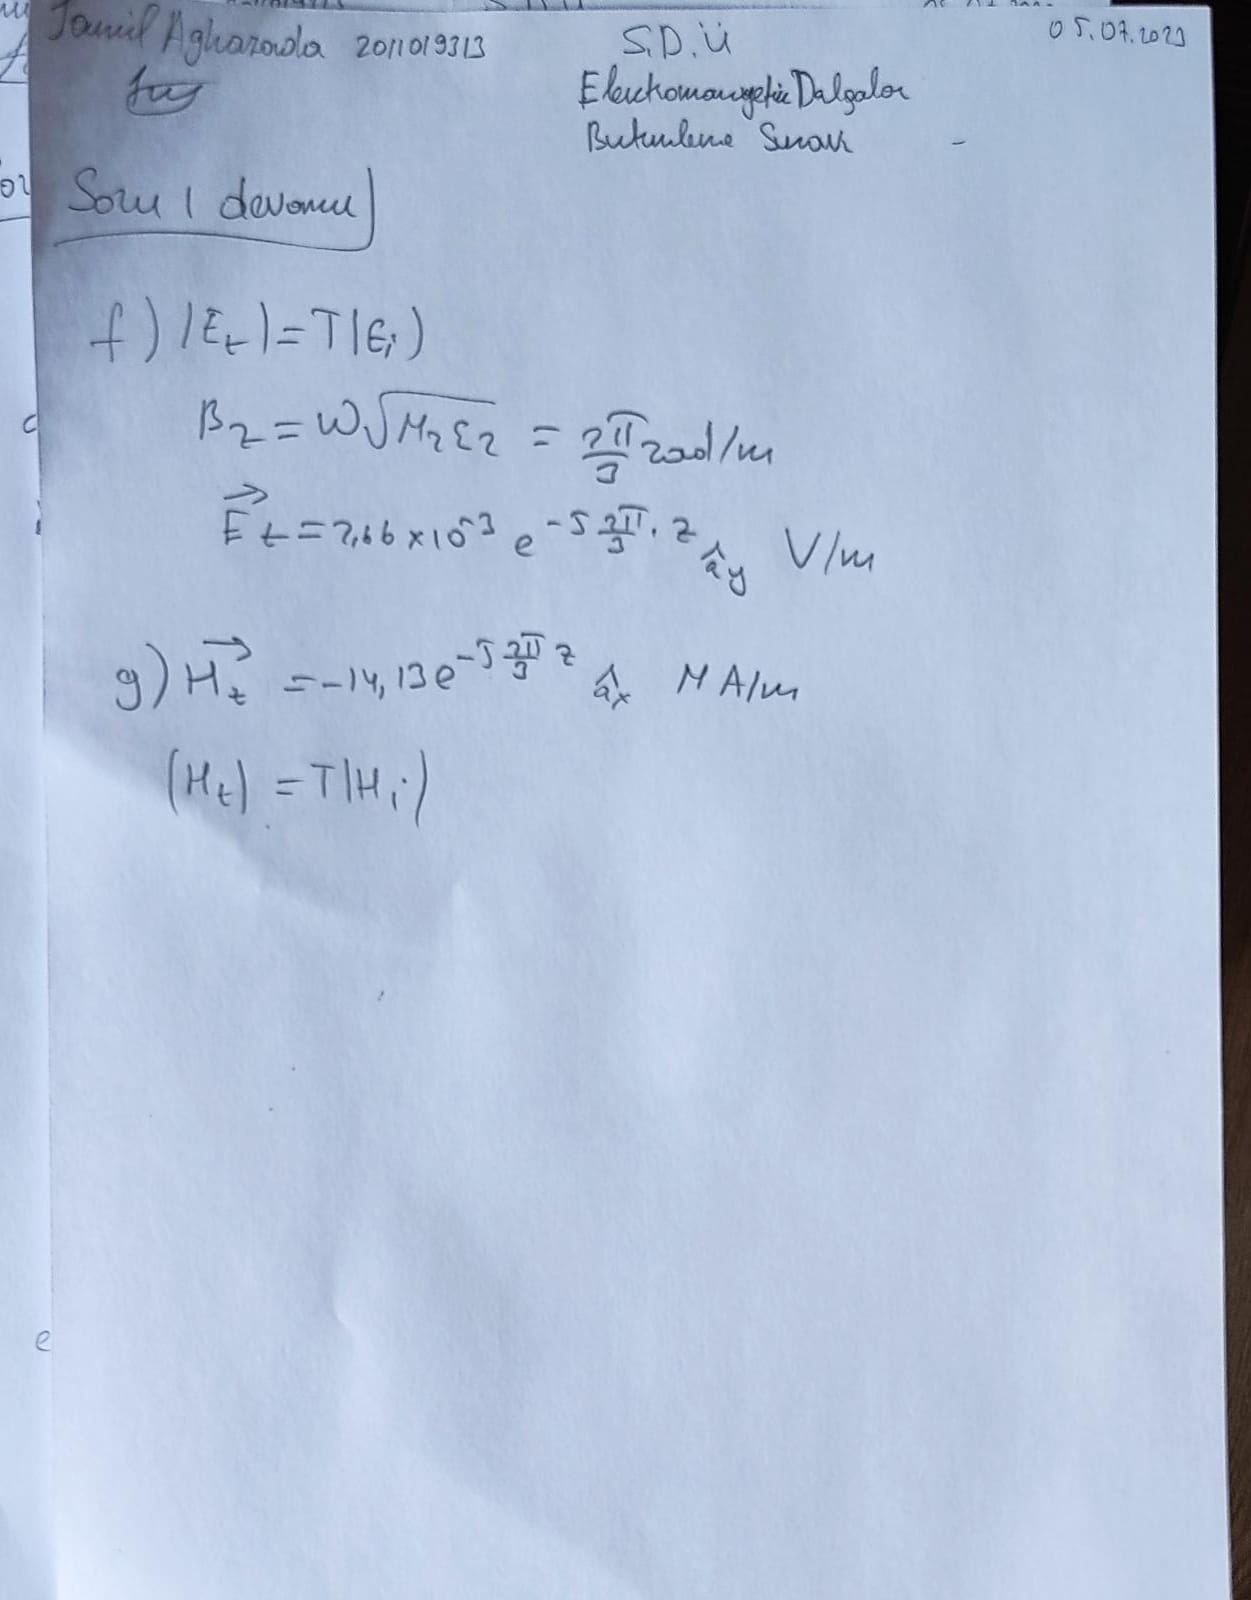 Jamil Agharzada 2011019313
S.D.Ü
05.07.2023
Elektromanyetik Dalgalar
Butunleme Sınavı
Soru 1 devamı
f) |Et| = T|Ei|
β2 = ω√μ2ε2 = 2π/3 rad/m
Et = 2,66 × 10^-3 e^-j 2π/3 . z ây V/m
g) Ht = -14,13 e^-j 2π/3 z âx μA/m
|Ht| = T|Hi|